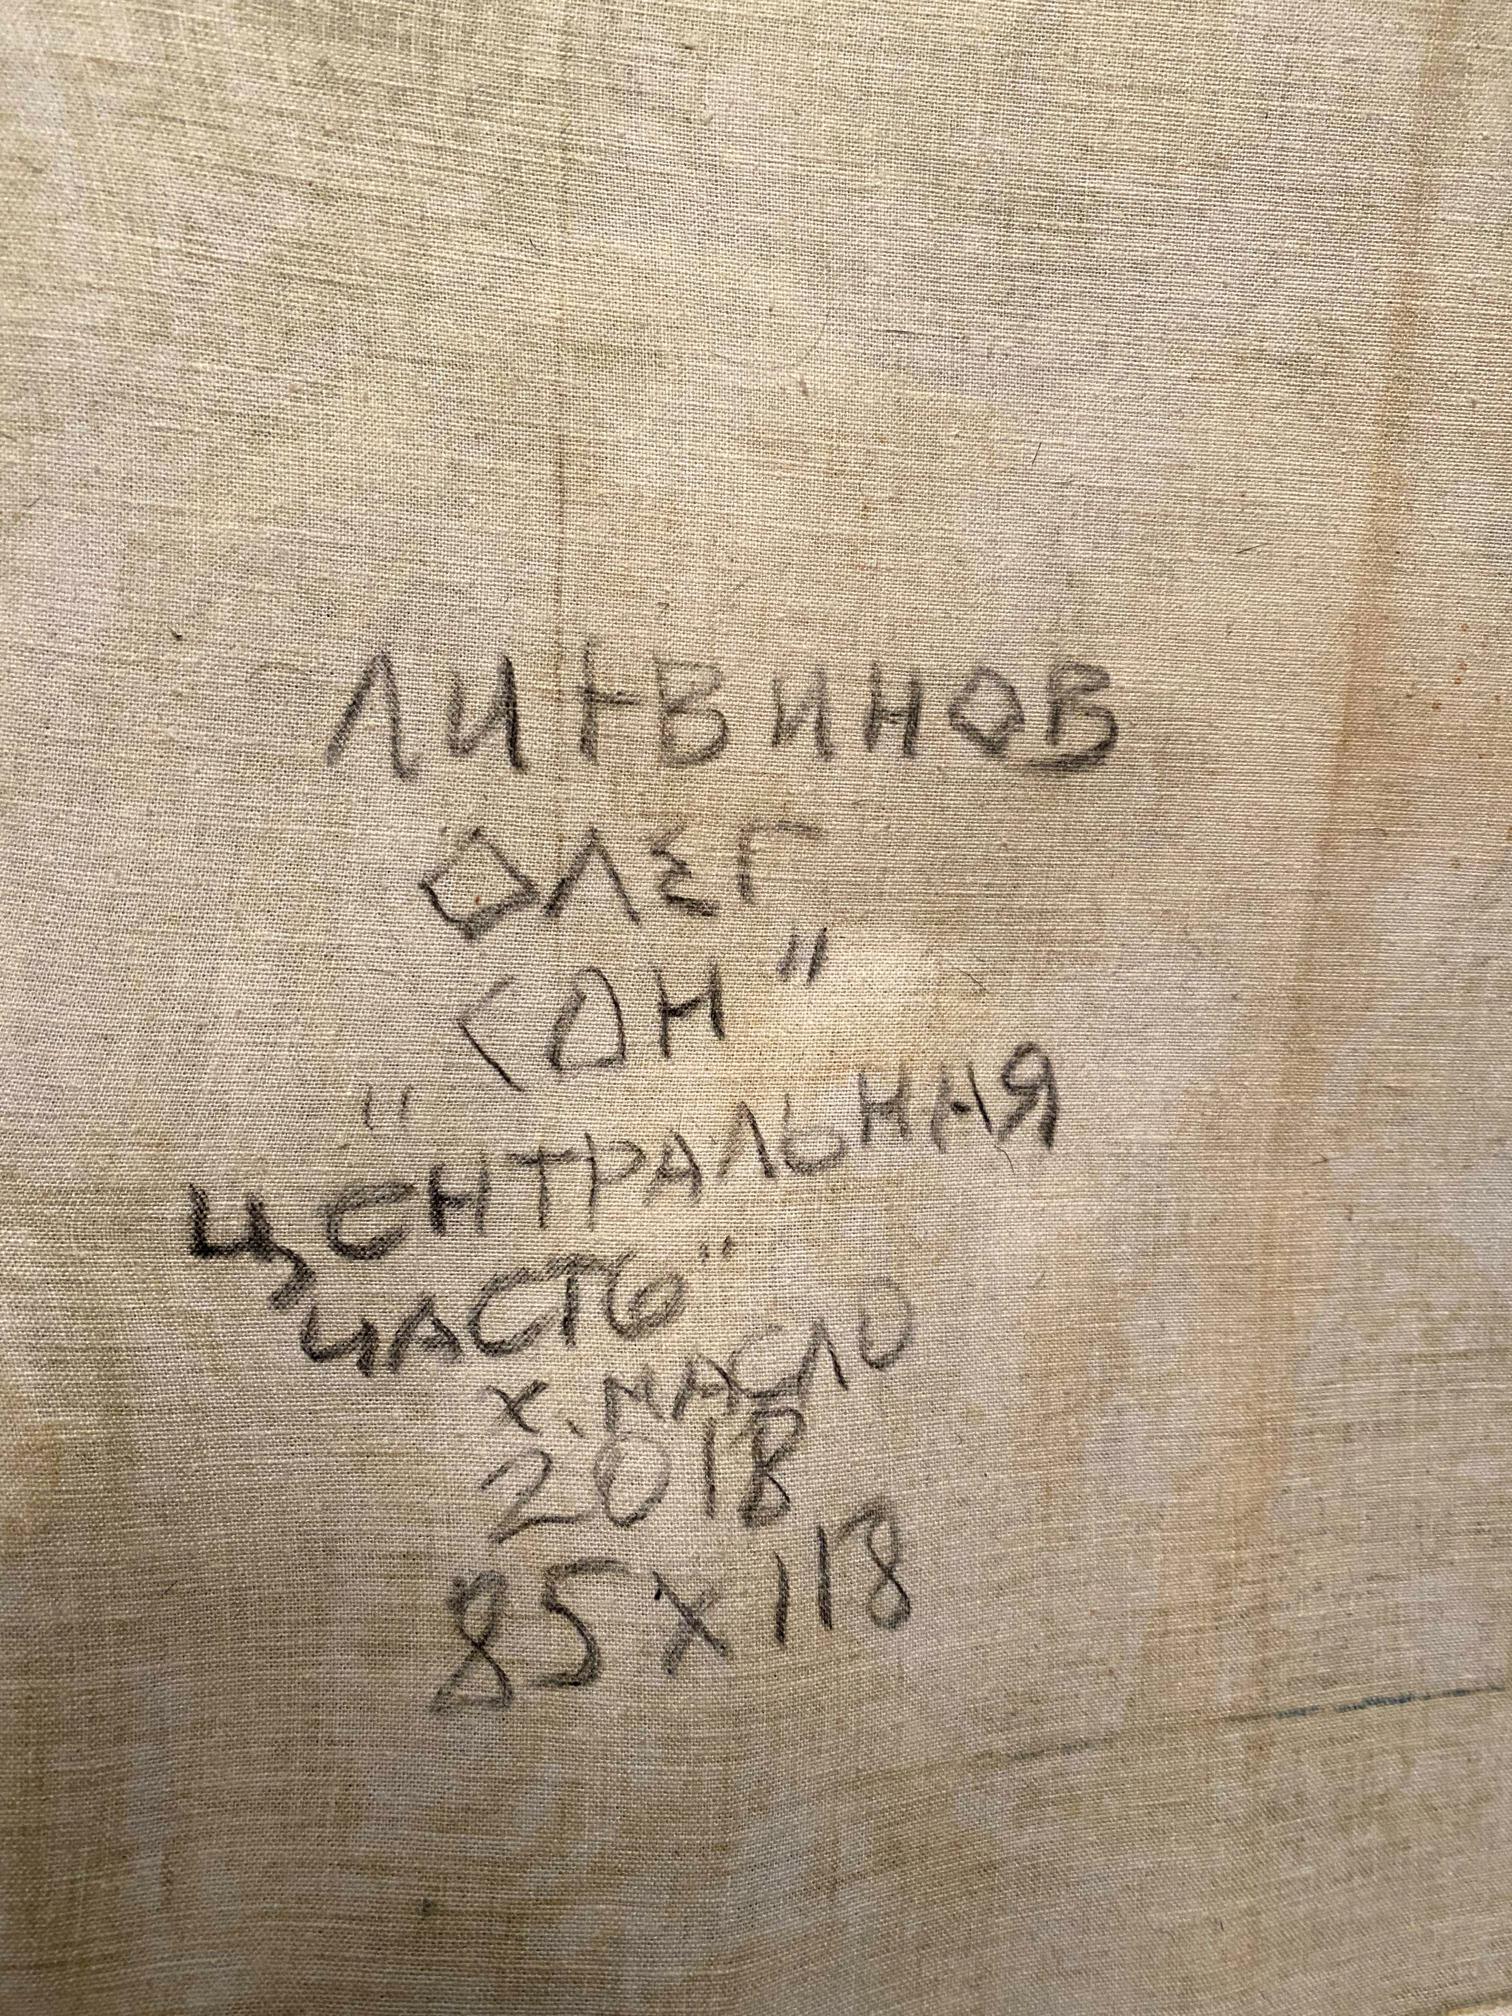 ЛИТВИНОВ
ОЛЕГ
СОН"
"ЦЕНТРАЛЬНАЯ
ЧАСТЬ"
х. МАСЛО
2018
85х118